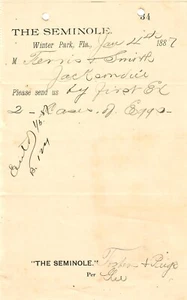 34
THE SEMINOLE.
Winter Park, Fla., Jan 4th 1887
M Ferris & Smith
Jacksonville
Please send us by first Ex
2 - Cases of Eggs
"THE SEMINOLE."
Per